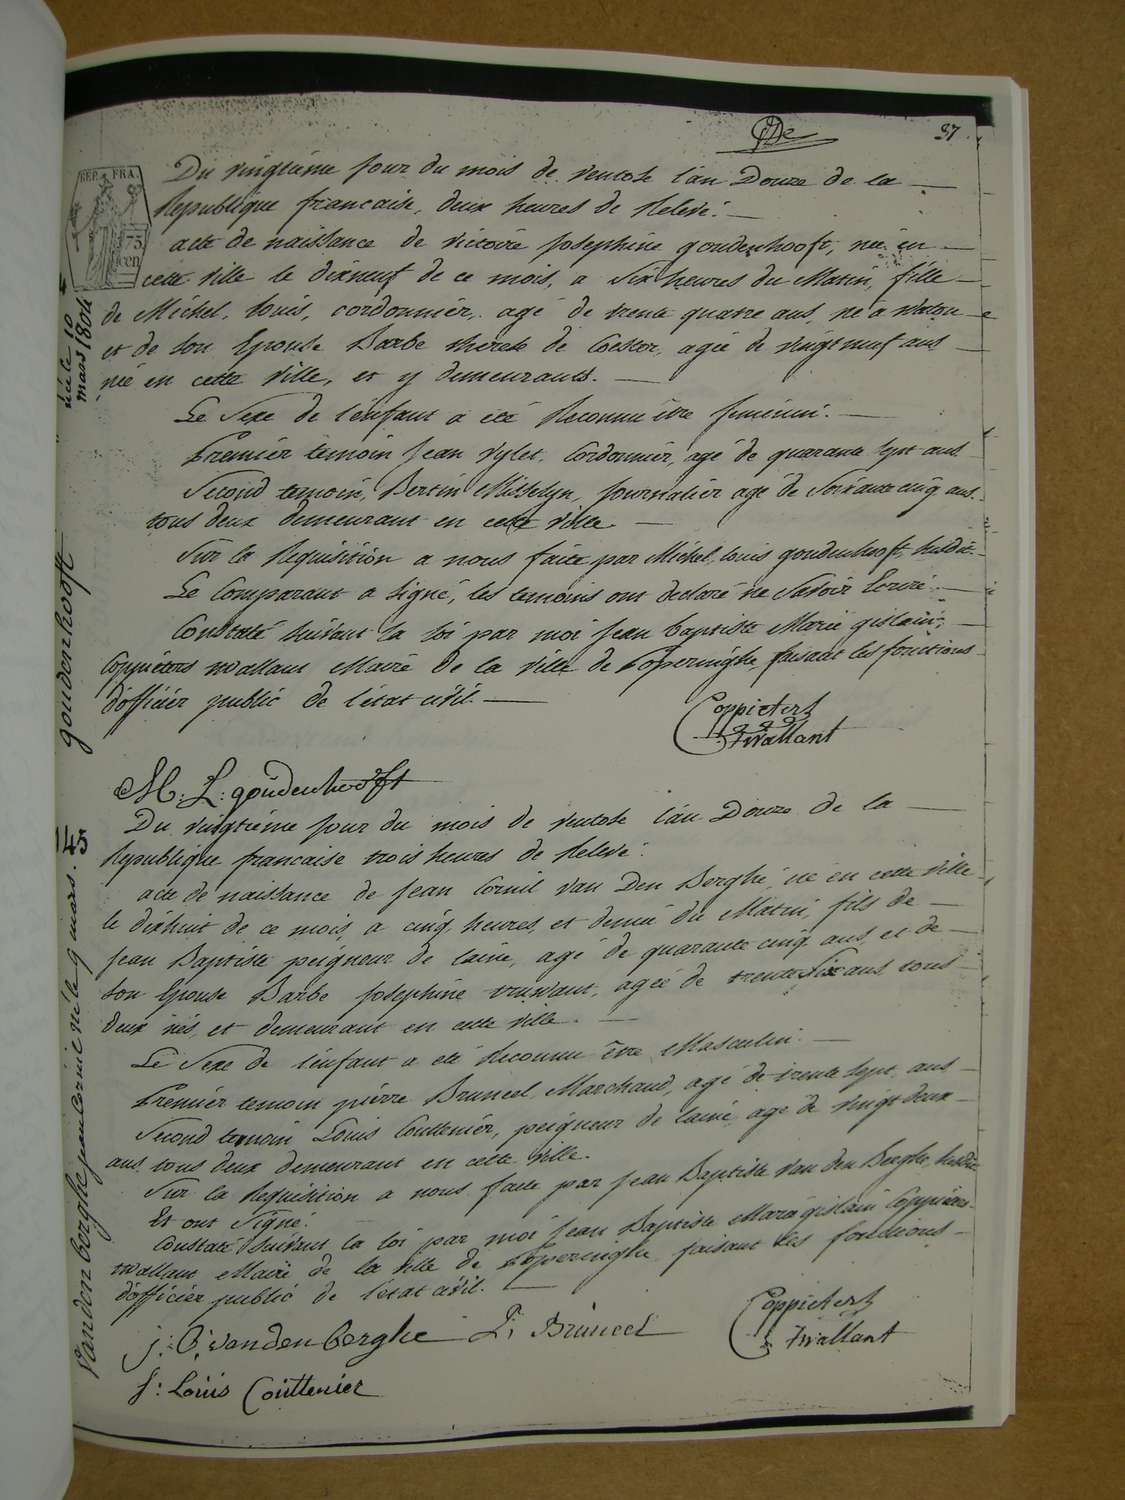 37
REP. FRA.
75
cen
Du vingtième jour du mois de ventose l'an Douze de la
Republique francaise, deux heures de Relevé.
acte de naissance de victoire Josephine goudenhooft, née en
cette ville le dixneuf de ce mois, a Six heures du Matin, fille
de Michel, Louis, cordonnier, agé de trente quatre ans, né a watou
et de Son Epouse Barbe therese de Coester, agée de vingt neuf ans
née en cette Ville, et y demeurants.
Le Sexe de l'enfant a été Reconnu être feminin.
Premier temoin Jean Vylet, Cordonnier, agé de quarante Sept ans
Second temoin, Bertin Misselyn, Journalier agé de Soixante cinq ans.
tous deux demeurant en cette ville.
Sur la Requisition a nous faite par Michel, Louis goudenhooft, Susdit
Le Comparant a signé, les temoins ont declaré ne Savoir Ecrire.
Constaté Suivant la loi par moi Jean baptiste Marie gislain,
Coppieters wallant Maire de la ville de Poperinghe faisant les fonctions
d'officier public de l'état civil.
Coppieters
Twallant
M: L: goudenhooft
née le 10
mars 1804
goudenhooft
Du vingtième jour du mois de ventose l'an Douze de la
Republique francaise trois heures de Relevé.
acte de naissance de Jean Cornil van Den Berghe, né en cette ville
le dixhuit de ce mois a cinq heures et demie du Matin, fils de
Jean Baptiste peigneur de laine, agé de quarante cinq ans, et de
Son Epouse Barbe Josephine truwant, agée de trente Six ans tous
deux nés, et demeurant en cette ville.
Le Sexe de l'enfant a été Reconnu être Masculin.
Premier temoin pierre Bruneel, Marchand, agé de trente Sept ans
Second temoin Louis Couttenier, peigneur de laine agé de vingt deux
ans, tous deux demeurant en cette ville.
Sur la Requisition a nous faite par Jean Baptiste Van den Berghe, Susdit
Et ont Signé.
Constaté Suivant la loi par moi Jean Baptiste Marie gislain Coppieters
wallant Maire de la ville de Poperinghe faisant les fonctions
d'officier public de l'état civil.
j: B: vandenberghe P, Bruneel
Coppieters
Twallant
J: Louis Couttenier
Vandenberghe jean cornil né le 9 mars.